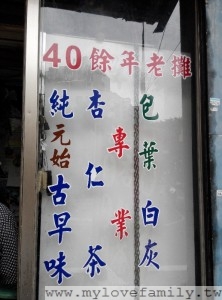 40餘年老攤
包葉白灰
專業
杏仁茶
純元始古早味
www.mylovefamily.tw